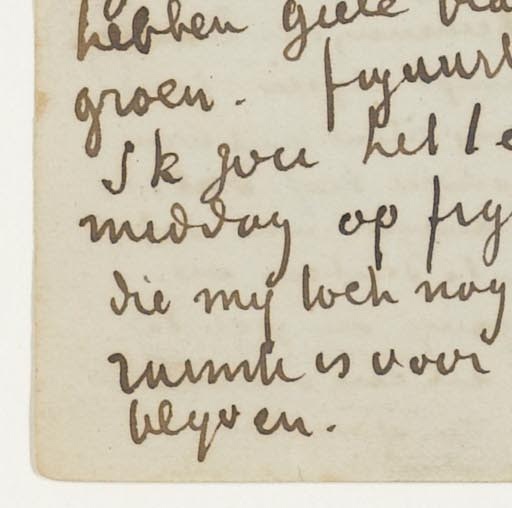 hebben gele
groen. figuur
Ik zou het
middag op fig
die my toch nog
ruimte is voor
blyven.